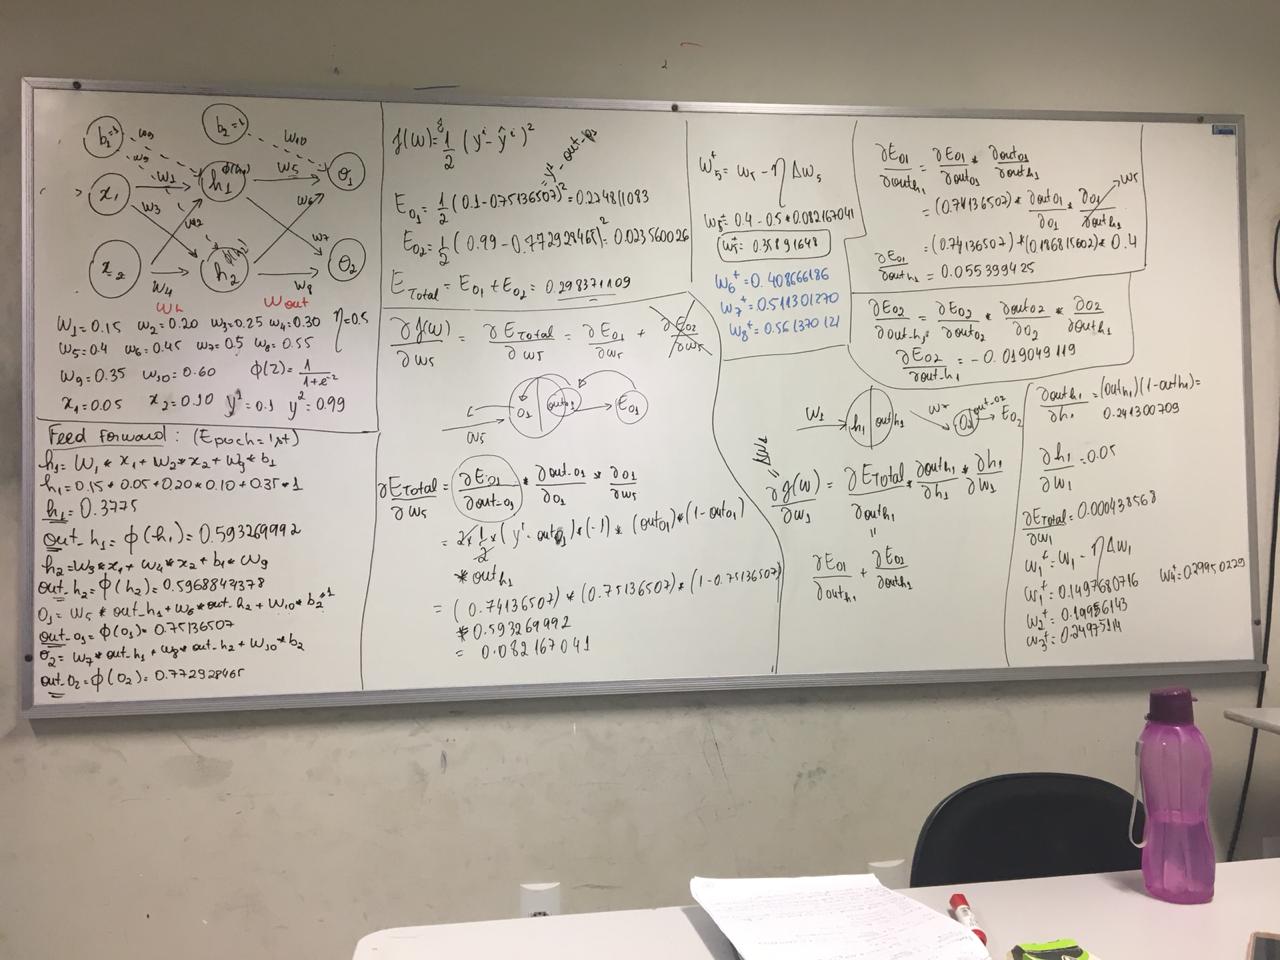 b₁=1
b₂=1
w₁₀
w₉
w₉
x₁
w₁
h₁
w₅
o₁
w₃
w₂
w₆
w₇
x₂
w₄
h₂
w₈
o₂
Wh
Wout
w₁=0.15 w₂=0.20 w₃=0.25 w₄=0.30 η=0.5
w₅=0.4 w₆=0.45 w₇=0.5 w₈=0.55
w₉=0.35 w₁₀=0.60 ϕ(z)=1/(1+e⁻ᶻ)
x₁=0.05 x₂=0.10 y¹=0.1 y²=0.99
Feed Forward: (Epoch=1st)
h₁=w₁*x₁+w₂*x₂+w₉*b₁
h₁=0.15*0.05+0.20*0.10+0.35*1
h₁=0.3775
out-h₁=ϕ(h₁)=0.593269992
h₂=w₃*x₁+w₄*x₂+b₁*w₉
out-h₂=ϕ(h₂)=0.596884378
o₁=w₅*out-h₁+w₆*out-h₂+w₁₀*b₂
out-o₁=ϕ(o₁)=0.75136507
o₂=w₇*out-h₁+w₈*out-h₂+w₁₀*b₂
out-o₂=ϕ(o₂)=0.772928465
J(w)=1/2 (yⁱ-ŷⁱ)²
E₀₁=1/2 (0.1-0.75136507)²=0.274811083
E₀₂=1/2 (0.99-0.772928465)²=0.023560026
E_Total=E₀₁+E₀₂=0.298371109
∂J(w)/∂w₅=∂E_Total/∂w₅=∂E₀₁/∂w₅+∂E₀₂/∂w₅
w₅ o₁ out₀₁ E₀₁
∂E_Total/∂w₅=∂E₀₁/∂out-o₁*∂out-o₁/∂o₁*∂o₁/∂w₅
=2*1/2*(y¹-out₀₁)*(-1)*(out₀₁)*(1-out₀₁)
*out_h₁
=(0.74136507)*(0.75136507)*(1-0.75136507)
*0.593269992
=0.082167041
w₅⁺=w₅-ηΔw₅
w₅⁺=0.4-0.5*0.082167041
w₅⁺=0.35891648
w₆⁺=0.408666186
w₇⁺=0.511301270
w₈⁺=0.561370121
∂E₀₁/∂out_h₁=∂E₀₁/∂out₀₁*∂out₀₁/∂out_h₁
=(0.74136507)*∂out₀₁/∂o₁*∂o₁/∂out_h₁ w₅
=(0.74136507)*(0.186815602)*0.4
∂E₀₁/∂out_h₁=0.055399425
∂E₀₂/∂out-h₁=∂E₀₂/∂out₀₂*∂out₀₂/∂o₂*∂o₂/∂out_h₁
∂E₀₂/∂out-h₁=-0.019049119
w₁ h₁ out_h₁ w₇ o₂ out-o₂ E₀₂
Δw₁
=
∂J(w)/∂w₁=∂E_Total/∂out_h₁*∂out_h₁/∂h₁*∂h₁/∂w₁
=
∂E₀₁/∂out_h₁+∂E₀₂/∂out_h₁
∂out_h₁/∂h₁=(out_h₁)(1-out_h₁)=
0.241300709
∂h₁/∂w₁=0.05
∂E_Total/∂w₁=0.000438568
w₁⁺=w₁-ηΔw₁
w₁⁺=0.1497680716
w₂⁺=0.19956143
w₃⁺=0.24975114
w₄⁺=0.29950229